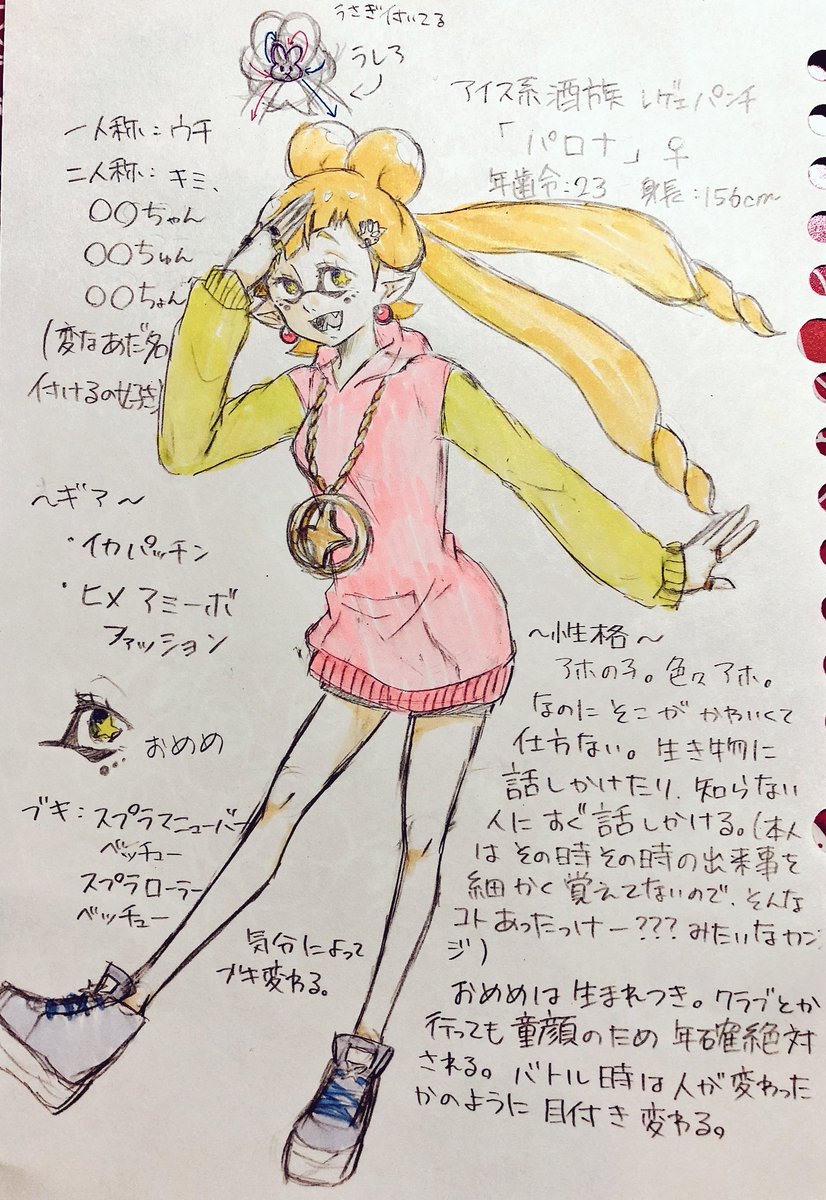 うさぎ付いてる
うしろ
アイス系酒族 レゲエパンチ
「パロナ」♀
年齢:23 身長:156cm
一人称:ウチ
二人称:キミ、
〇〇ちゃん
〇〇ちゅん
〇〇ちょん
(変なあだ名
付けるの好き)
〜ギア〜
・イカパッチン
・ヒメアミーボ
ファッション
おめめ
ブキ:スプラマニューバー
ベッチュー
スプラローラー
ベッチュー
気分によって
ブキ変わる。
〜性格〜
アホの子。色々アホ。
なのにそこがかわいくて
仕方ない。生き物に
話しかけたり、知らない
人にすぐ話しかける。(本人
はその時その時の出来事を
細かく覚えてないので、そんな
コトあったっけー???みたいなカン
ジ)
おめめは生まれつき。クラブとか
行っても童顔のため年確絶対
される。バトル時は人が変わった
かのように目付き変わる。